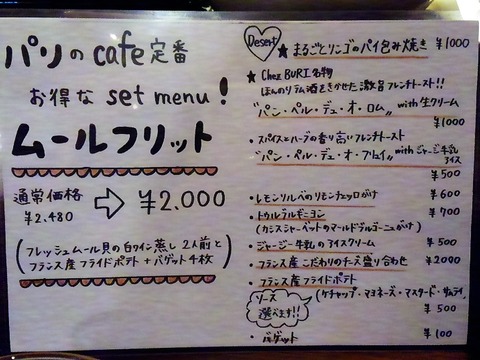 パリの cafe 定番
お得な set menu!
ムールフリット
通常価格
¥2.480
⇨ ¥2.000
(フレッシュムール貝の白ワイン蒸し 2人前と
フランス産フライドポテト + バゲット4枚)
Desert
★ まるごとリンゴのパイ包み焼き ¥1000
★ Chez BURI 名物
ほんのりラム酒をきかせた激旨フレンチトースト!!
"パン・ペル・デュ・オ・ロム" with 生クリーム
¥1000
・スパイスとハーブの香り高いフレンチトースト
"パン・ペル・デュ・オ with ジャージー牛乳
アイス
¥500
・レモンソルベのリモンチェッロがけ ¥600
・トゥルブルギニヨン ¥700
(カシスシャーベットのマールドブルゴーニュがけ)
・ジャージー牛乳のアイスクリーム ¥500
・フランス産こだわりのチーズ盛り合わせ ¥2000
・フランス産フライドポテト
ソース
選べます!!
(ケチャップ・マヨネーズ・マスタード・サムライ)
¥500
・バゲット ¥100